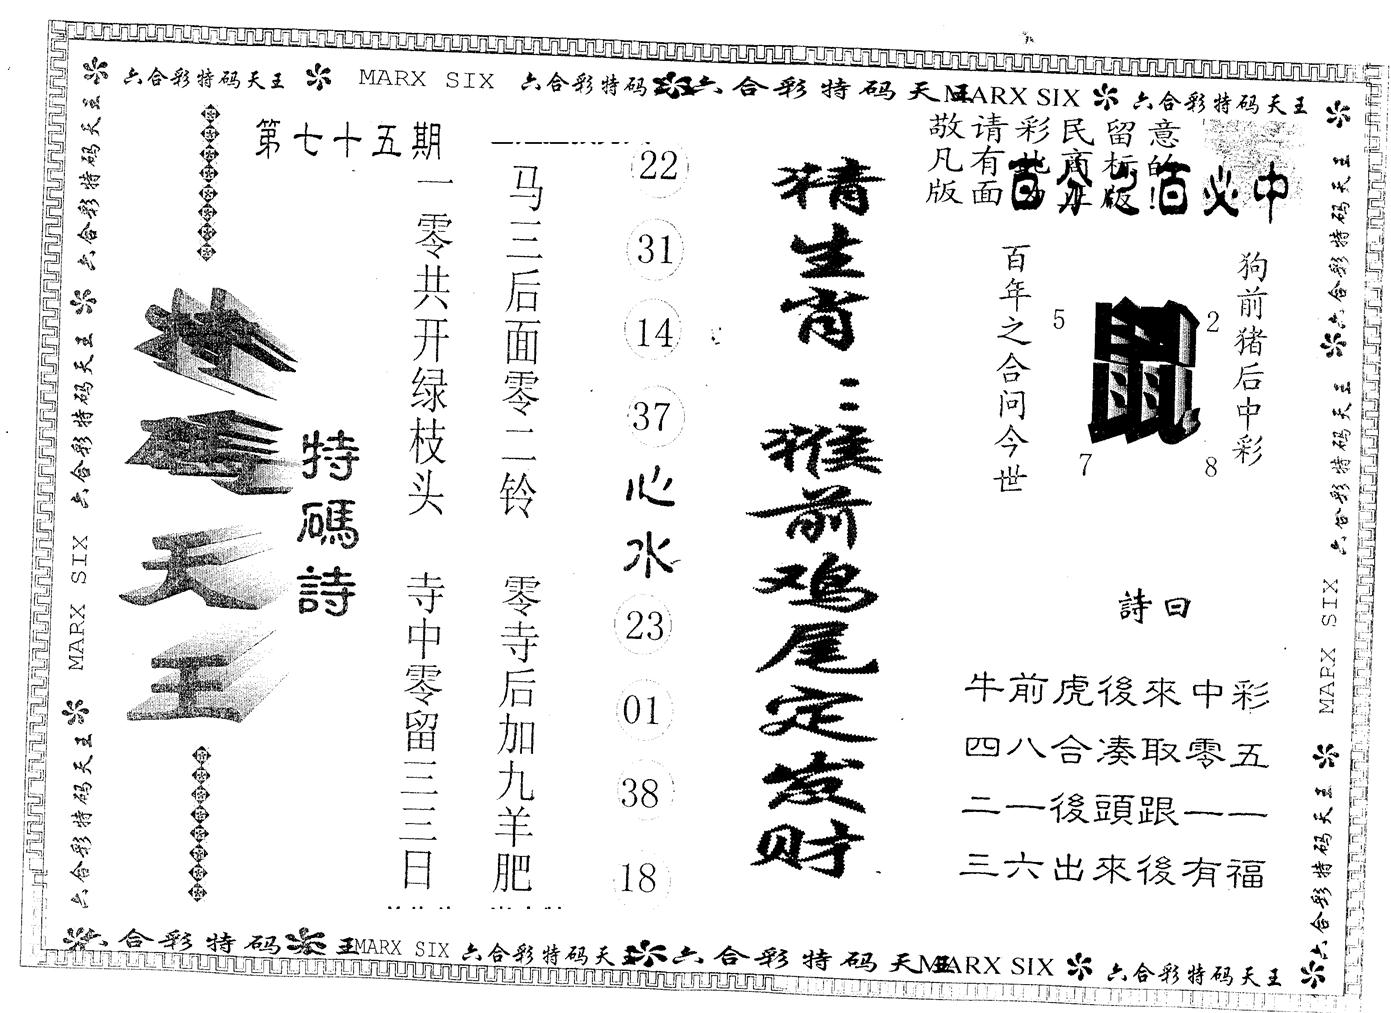 六合彩特码天王 MARX SIX 六合彩特码 六合彩特码天王 MARX SIX 六合彩特码天王
第七十五期
敬请彩民留意
凡有此商标的!
版面
百分之百必中
特碼詩
一零共开绿枝头
寺中零留三三日
马三后面零二铃
零寺后加九羊肥
22
31
14
37
心水
23
01
38
18
猜生肖：猴前鸡尾定发财
百年之合问今世
狗前猪后中彩
鼠
5
2
7
8
詩曰
牛前虎後來中彩
四八合凑取零五
二一後頭跟一一
三六出來後有福
天王
六合彩特码天王
六合彩特码天王
六合彩特码天王
MARX SIX
六合彩特码天王
六合彩特码天王
六合彩特码天王
六合彩特码天王
MARX SIX
六合彩特码天王
六合彩特码 王 MARX SIX 六合彩特码天王 六合彩特码天王 MARX SIX 六合彩特码天王